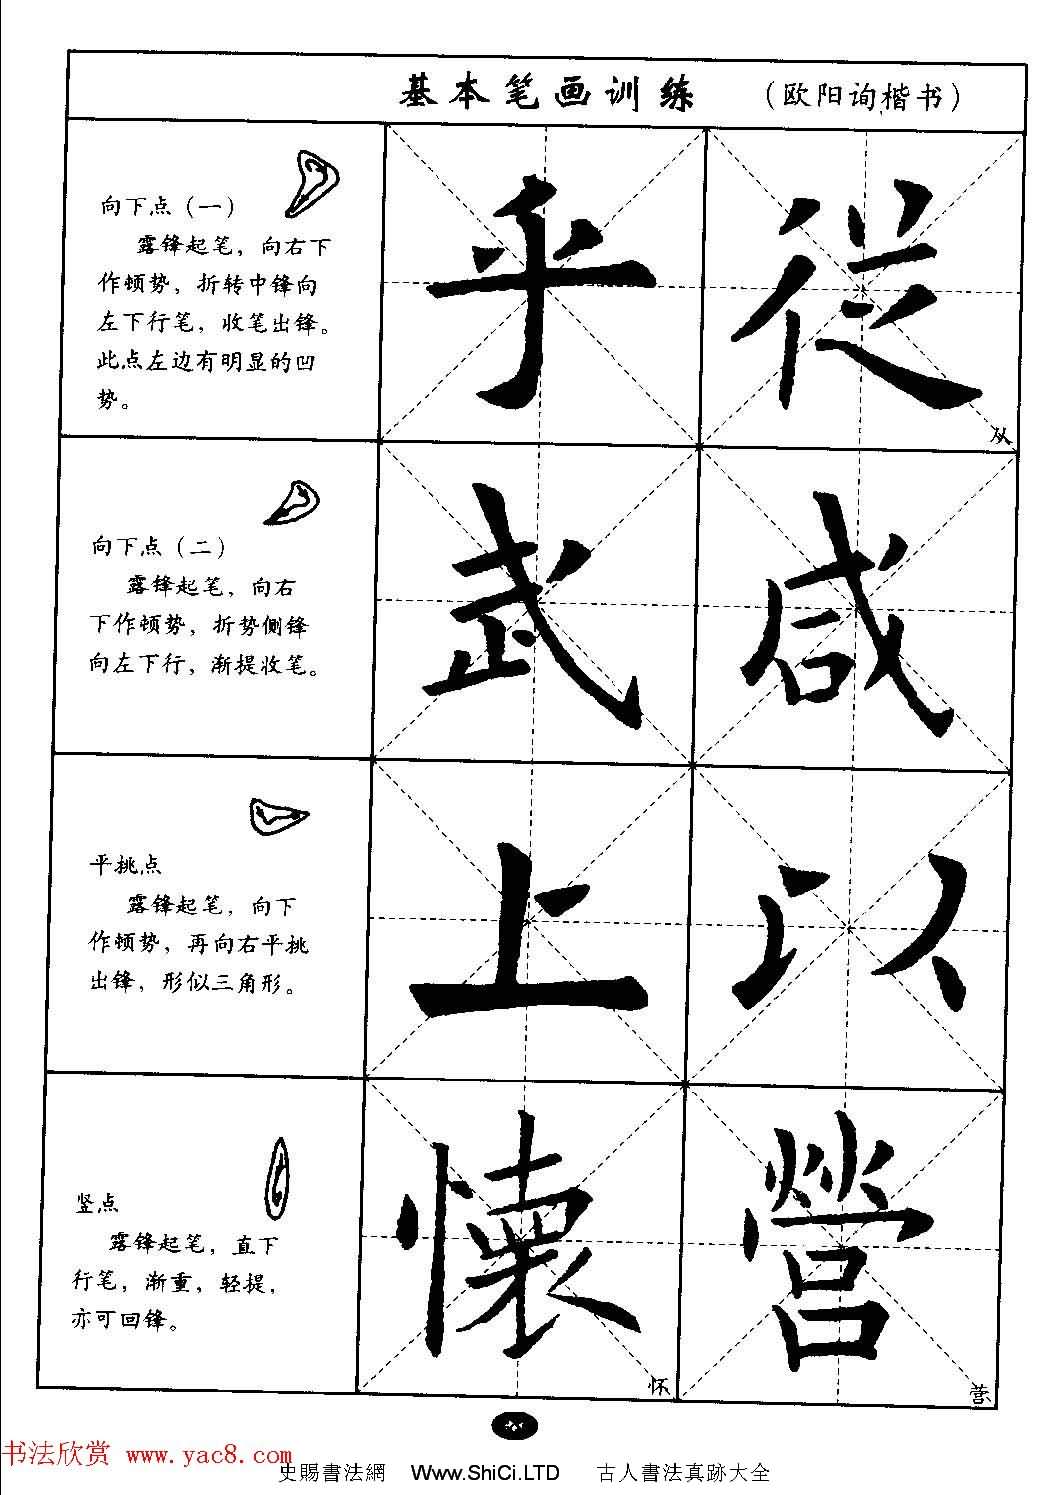 基本笔画训练 （欧阳询楷书）
向下点（一）
露锋起笔，向右下
作顿势，折转中锋向
左下行笔，收笔出锋。
此点左边有明显的凹
势。
乎 從
从
向下点（二）
露锋起笔，向右
下作顿势，折势侧锋
向左下行，渐提收笔。
武 咸
平挑点
露锋起笔，向下
作顿势，再向右平挑
出锋，形似三角形。
上 以
竖点
露锋起笔，直下
行笔，渐重，轻提，
亦可回锋。
懷 營
怀 营
书法欣赏 www.yac8.com
史賜書法網 Www.ShiCi.LTD 古人書法真跡大全